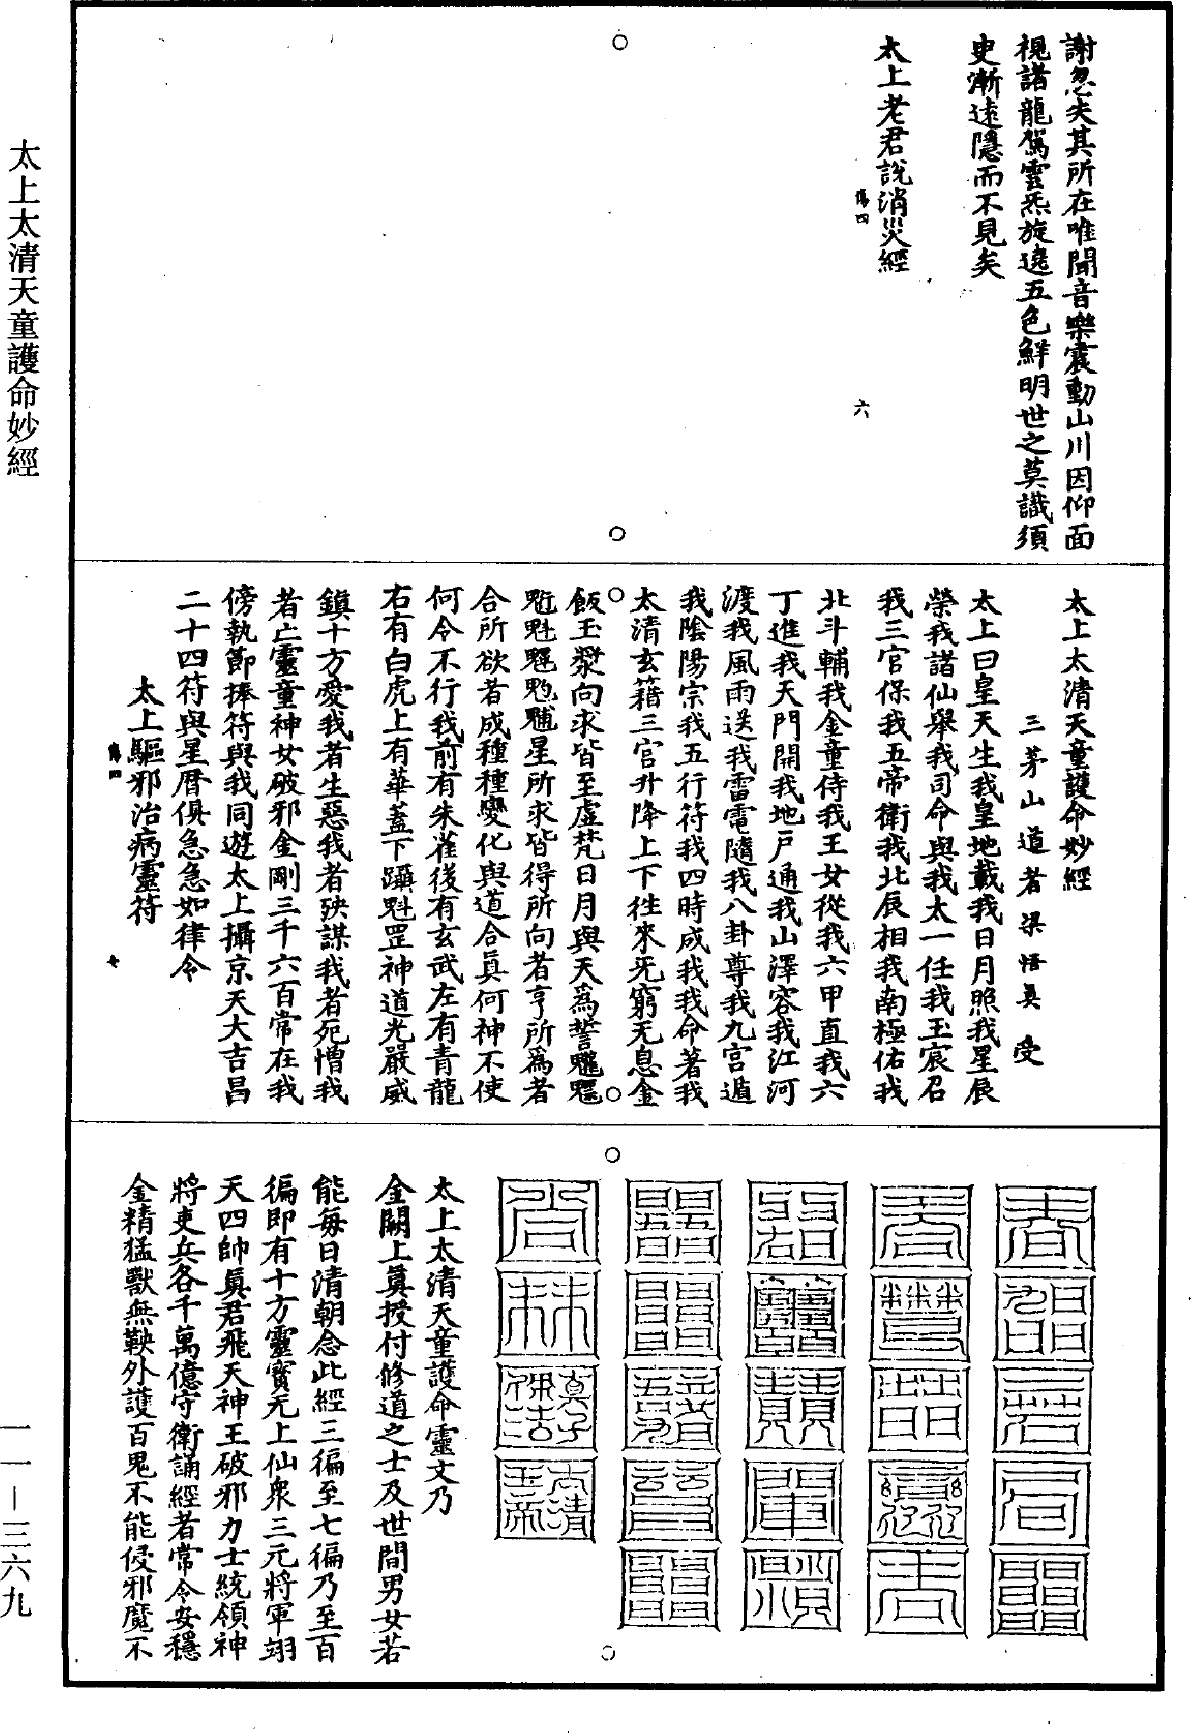 謝忽失其所在唯聞音樂震動山川因仰面
視諸龍駕雲炁旋遶五色鮮明世之莫識須
臾漸遠隱而不見矣
太上老君說消災經
傷四
六
太上太清天童護命妙經
三茅山道者梁悟真受
太上曰皇天生我皇地載我日月照我星辰
榮我諸仙舉我司命與我太一任我玉宸召
我三官保我五帝衛我北辰相我南極佑我
北斗輔我金童侍我玉女從我六甲直我六
丁進我天門開我地戶通我山澤容我江河
渡我風雨送我雷電隨我八卦尊我九宮遁
我陰陽宗我五行符我四時成我我命著我
太清玄籍三官升降上下往來无窮无息金
飯玉漿向求皆至虛梵日月與天為誓
星所求皆得所向者亨所為者
合所欲者成種種變化與道合真何神不使
何令不行我前有朱雀後有玄武左有青龍
右有白虎上有華蓋下躡魁罡神道光嚴威
鎮十方愛我者生惡我者殃謀我者死憎我
者亡靈童神女破邪金剛三千六百常在我
傍執節捧符與我同遊太上攝京天大吉昌
二十四符與星曆俱急急如律令
太上驅邪治病靈符
傷四
七
太上太清天童護命靈文乃
金闕上真授付修道之士及世間男女若
能每日清朝念此經三徧至七徧乃至百
徧即有十方靈寶无上仙衆三元將軍翊
天四帥真君飛天神王破邪力士統領神
將吏兵各千萬億守衛誦經者常令安穩
金精猛獸無鞅外護百鬼不能侵邪魔不
太上太清天童護命妙經
一一—三六九